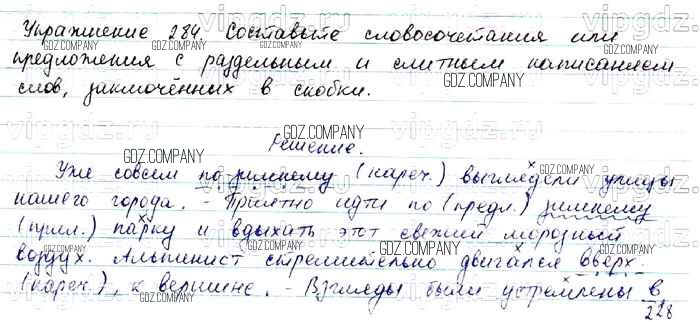 Упражнение 284. Составьте словосочетания или
предложения с раздельным и слитным написанием
слов, заключённых в скобки.
Решение.
Уже совсем по-зимнему (нареч.) выглядели улицы
нашего города. - Приятно идти по (предл.) зимнему
(прил.) парку и вдыхать этот свежий морозный
воздух. Альпинист стремительно двигался вверх
(нареч.), к вершине. - Взгляды были устремлены в
228